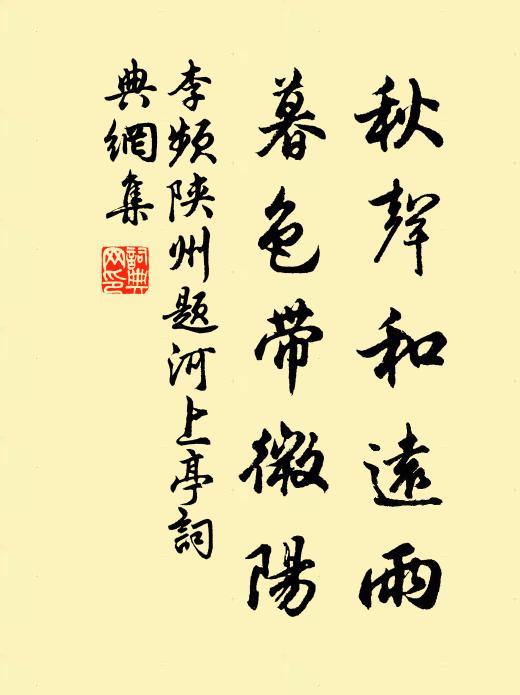 秋聲和遠雨
暮色帶微陽
李頻陝州題河上亭詞
典網集
詞典
网印